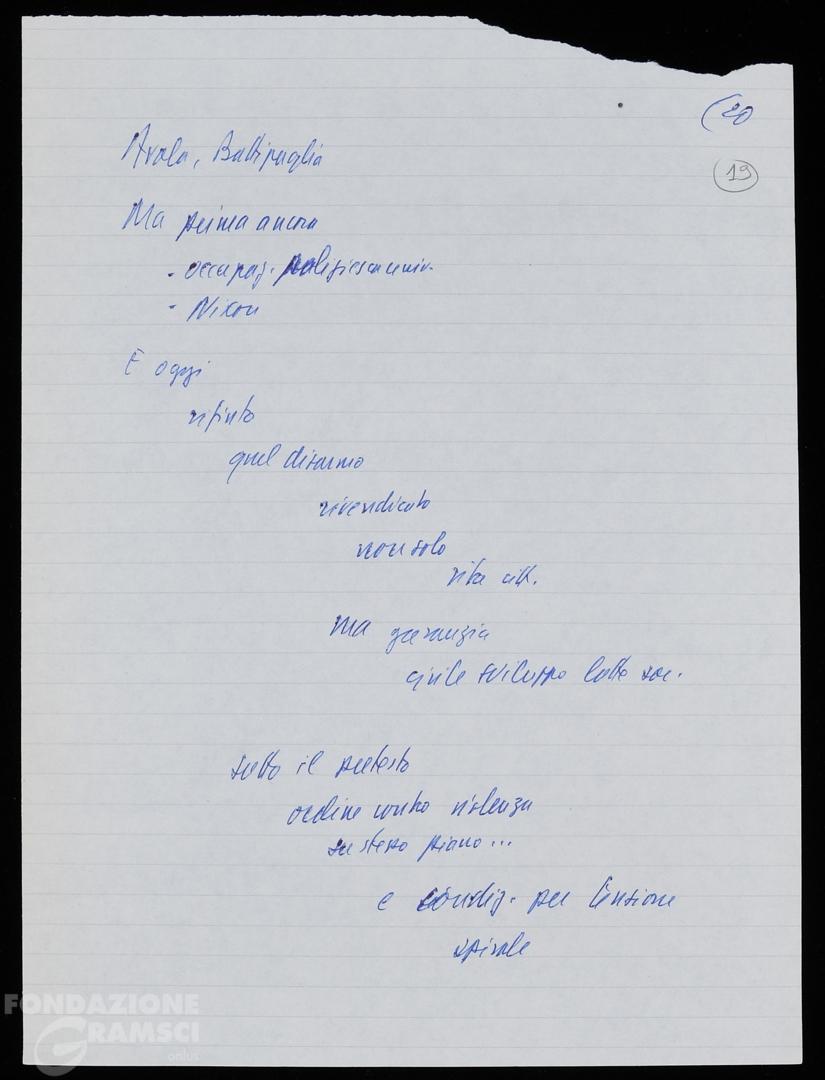 (20
19
Avola, Battipaglia
Ma prima ancora
- occupaz. poliziesca univ.
- Nixon
E oggi
rifiuto
quel disarmo
rivendicato
non solo
vita citt.
ma garanzia
civile sviluppo lotte soc.
sotto il pretesto
ordine contro violenza
su stesso piano...
e condiz. per tensione
spirale
FONDAZIONE
GRAMSCI
onlus